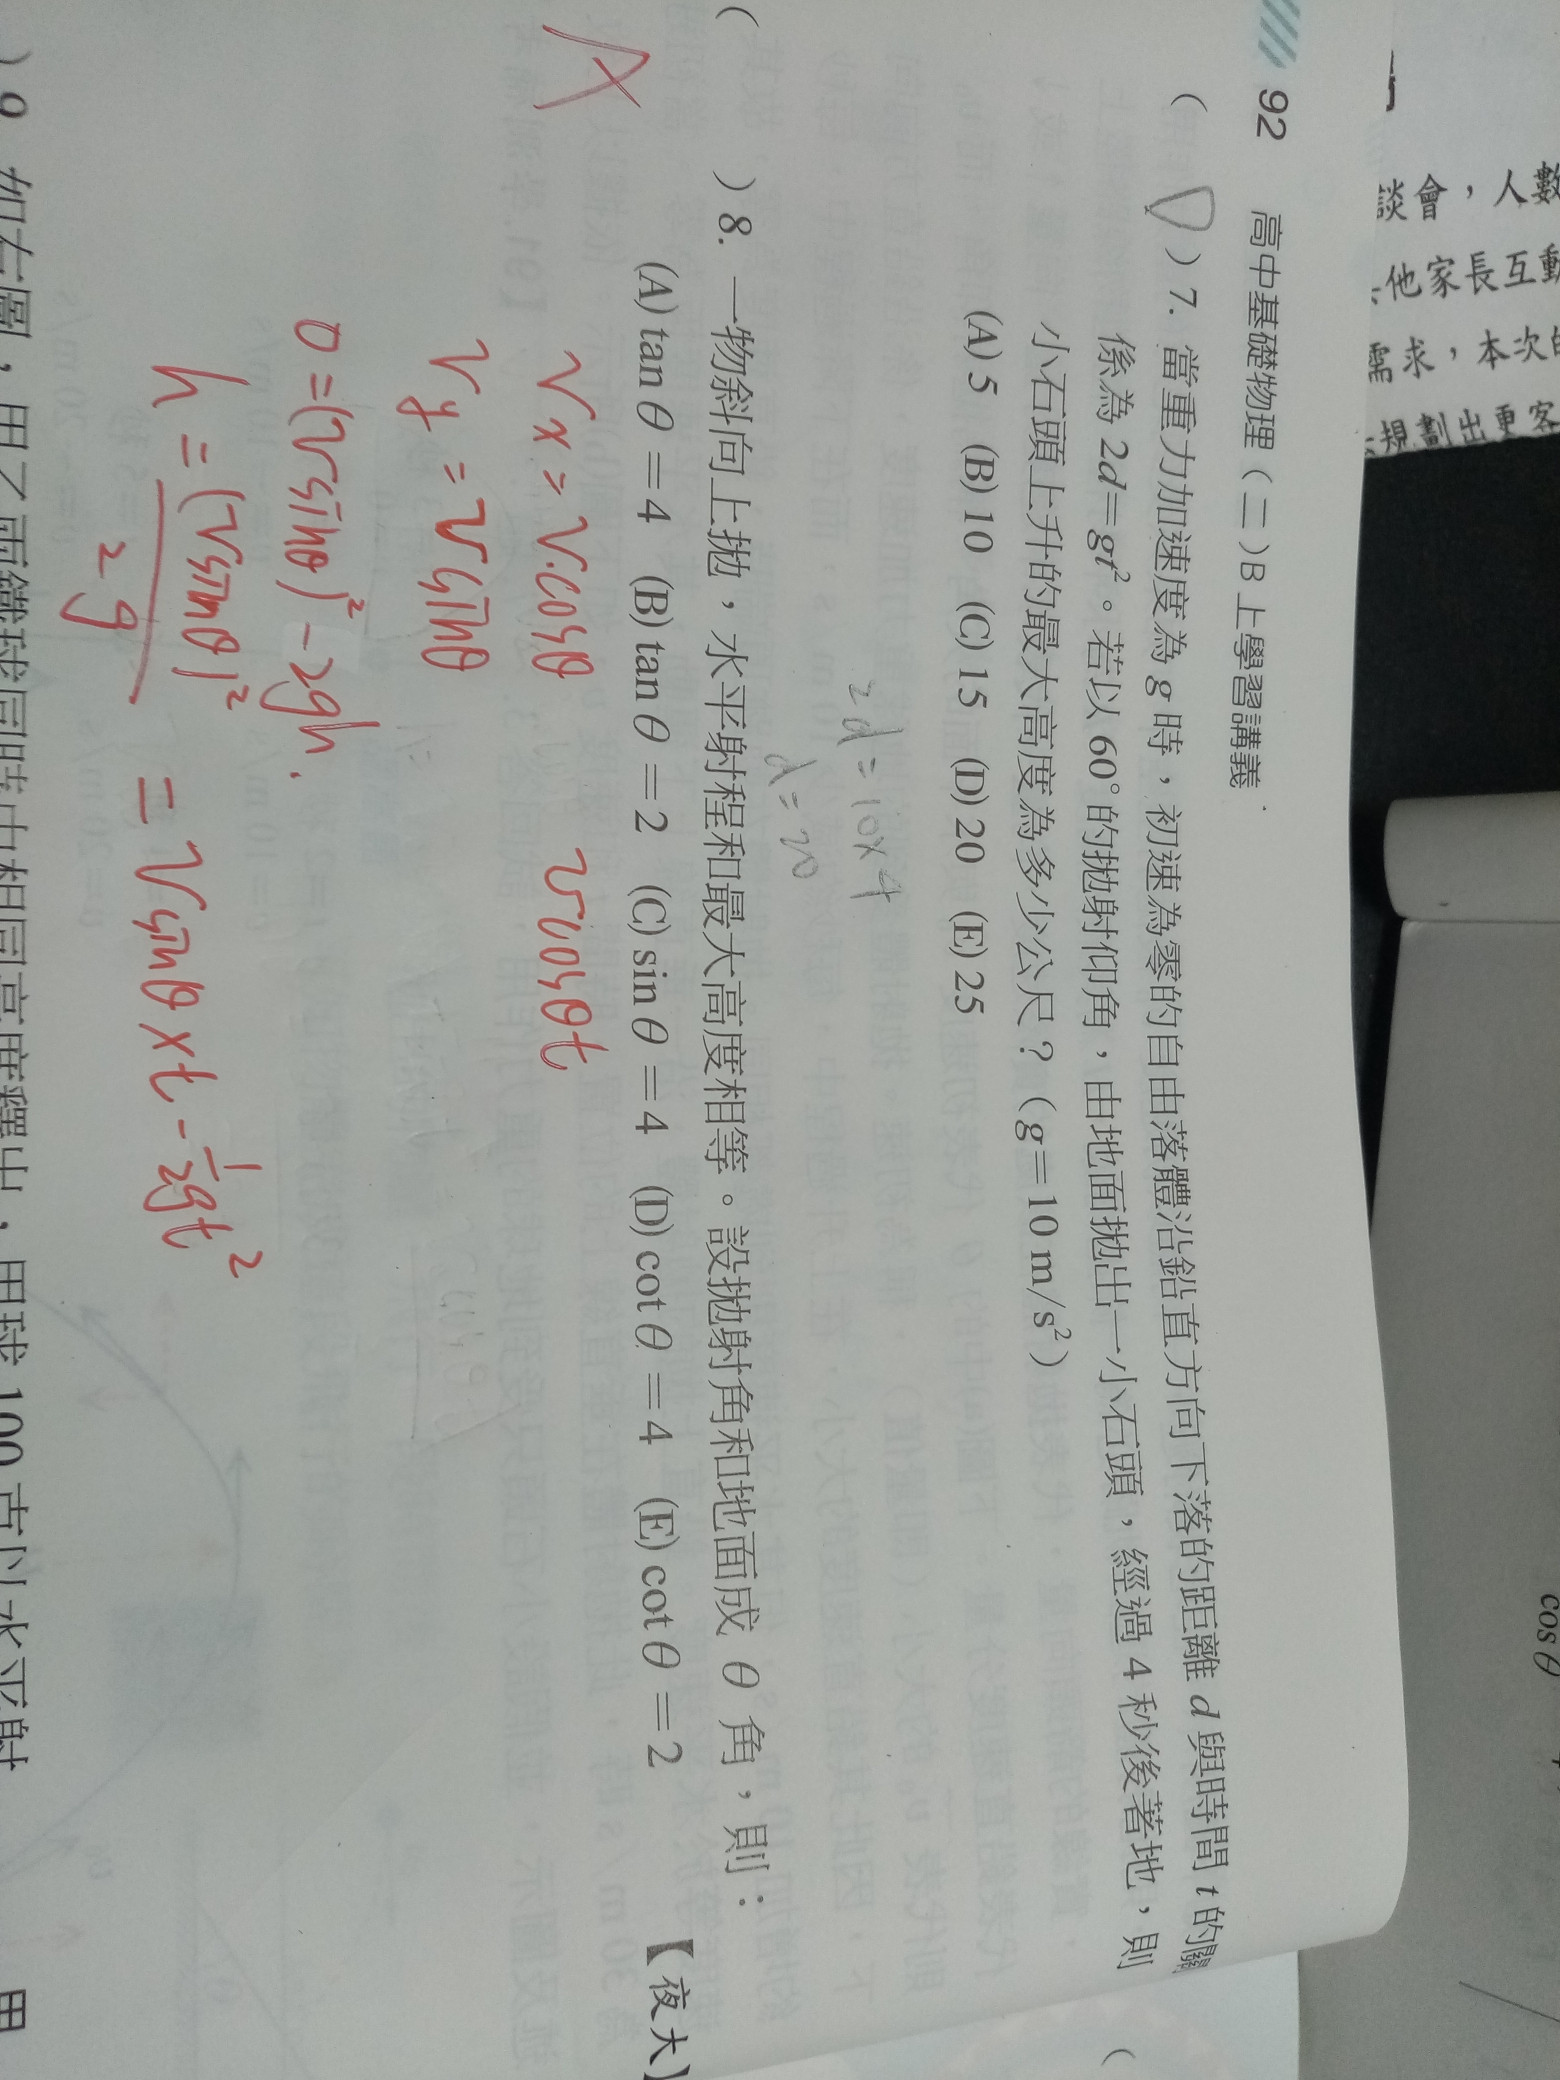 談會，人數
他家長互動
需求，本次的
規劃出更客
cos θ
92 高中基礎物理(二)B上學習講義
( D ) 7. 當重力加速度為 g 時，初速為零的自由落體沿鉛直方向下落的距離 d 與時間 t 的關
係為 2d=gt²。若以 60°的拋射仰角，由地面拋出一小石頭，經過 4 秒後著地，則
小石頭上升的最大高度為多少公尺？(g=10 m/s²)
(A) 5 (B) 10 (C) 15 (D) 20 (E) 25
2d=10×4
d=20
( ) 8. 一物斜向上拋，水平射程和最大高度相等。設拋射角和地面成 θ 角，則：
【夜大】
(A) tan θ=4 (B) tan θ=2 (C) sin θ=4 (D) cot θ=4 (E) cot θ=2
A
Vx=V·cosθ vcosθt
Vy=Vsinθ
0=(Vsinθ)²-2gh.
h=(Vsinθ)²/2g = Vsinθ×t-1/2gt²
) 9. 如右圖，甲乙兩鐵球同時由相同高度釋出，甲球 100 克以水平射